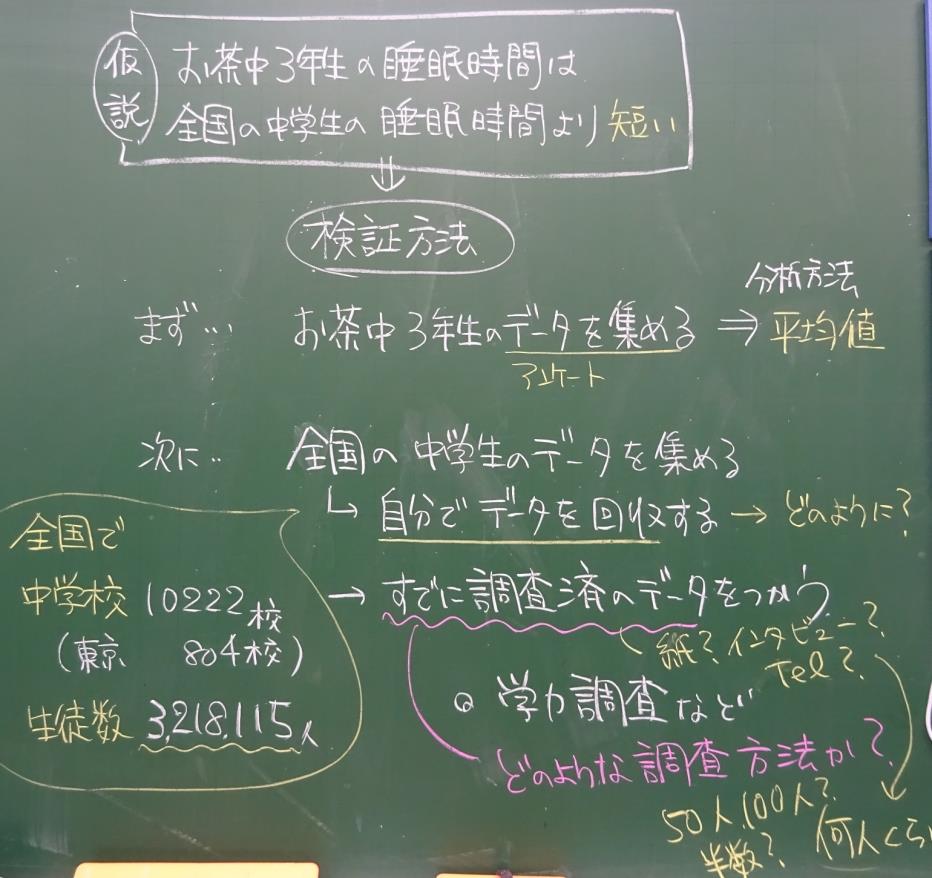 仮説
お茶中3年生の睡眠時間は
全国の中学生の睡眠時間より短い
検証方法
まず… お茶中3年生のデータを集める ⇒
分析方法
平均値
アンケート
次に‥ 全国の中学生のデータを集める
↳ 自分でデータを回収する → どのように?
→ すでに調査済のデータをつかう
紙?インタビュー?
Tel?
◎ 学力調査など
どのような調査方法か?
50人,100人?
半数?
何人くら
全国で
中学校 10222校
(東京 804校)
生徒数 3,218,115人